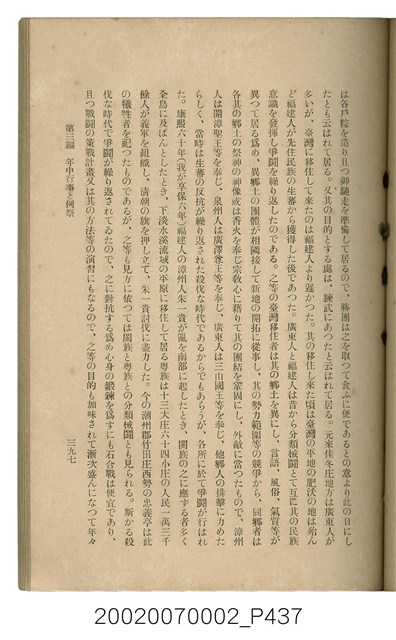 は各戶粽を造り且つ御馳走を準備して居るので、勝團は之を取つて食ふに便であるとの意より此の日にし
たとも云はれて居る。又其の目的とする處は、練武にあつたと云はれて居る。元來佳冬庄地方は廣東人が
多いが、臺灣に移住して來たのは福建人より遲かつた。其の移住し來た頃は臺灣の平地の肥沃の地は殆ん
ど福建人が先住民族の生蕃から獲得した後であつた。廣東人と福建人は昔から分類械鬪とて互に其の民族
意識を發揮し爭鬪を繰り返したのである。之等の臺灣移住者は其の鄉土を異にし、言語、風俗、氣質等が
異つて居る爲め、異鄉土の團體が相隣接して新地の開拓に從事し、其の勢力範圍等の競爭から、同鄉者は
各其の鄉土の祭神の神像或は香火を奉じ宗敎心に藉りて其の團結を鞏固にし、外敵に當つたもので、漳州
人は開漳聖王等を奉じ、泉州人は廣澤尊王等を奉じ、廣東人は三山國王等を奉じ、他鄉人の排擊に力めた
らしく、當時は生蕃の反抗が繰り返された殺伐な時代であるからでもあらうが、各所に於て爭鬪が行はれ
た。康熙六十年(我が享保六年)福建人の漳州人朱一貴が亂を南部に起したとき、閩族の之に應ずる者多く
全島に及ばんとしたとき、下淡水溪流域の平原に移住して居る粵族は十三大庄六十四小庄の人民一萬三千
餘人が義軍を組織し、淸朝の旗を押し立て、朱一貴討伐に盡力した。今の潮州郡竹田庄西勢の忠義亭は此
の犧牲者を祀つたものであるが、之等も見方に依つては閩族と粵族との分類械鬪とも見られる。斯かる殺
伐な時代で爭鬪が繰り返されてゐたので、之に對抗する爲め心身の鍛鍊を爲すにも石合戰は便宜であり、
且つ戰鬪の策戰計畫又は其の方法等の演習にもなるので、之等の目的も加味されて漸次盛んになつて年々
第三編　年中行事と例祭
三九七
20020070002_P437